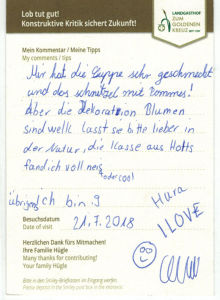 Lob tut gut!
Konstruktive Kritik sichert Zukunft!
LANDGASTHOF
ZUM
GOLDENEN
KREUZ
Mein Kommentar / Meine Tipps
My comments / tips
Mir hat die Suppe sehr geschmeckt
und das schnitzel mit Pommes!
Aber die Dekoration Blumen
sind welk lasst sie bitte lieber in
der Natur, die Klasse aus Holts
fand ich voll neis
oder cool
übrigens ich bin 9
Besuchsdatum
Date of visit
21.7.2018
Hura
I LOVE
Herzlichen Dank fürs Mitmachen!
Ihre Familie Hügle
Many thanks for contributing!
Your family Hügle
Bitte in den Smiley-Briefkasten im Eingang werfen
Please deposit in the Smiley post box in the entrance